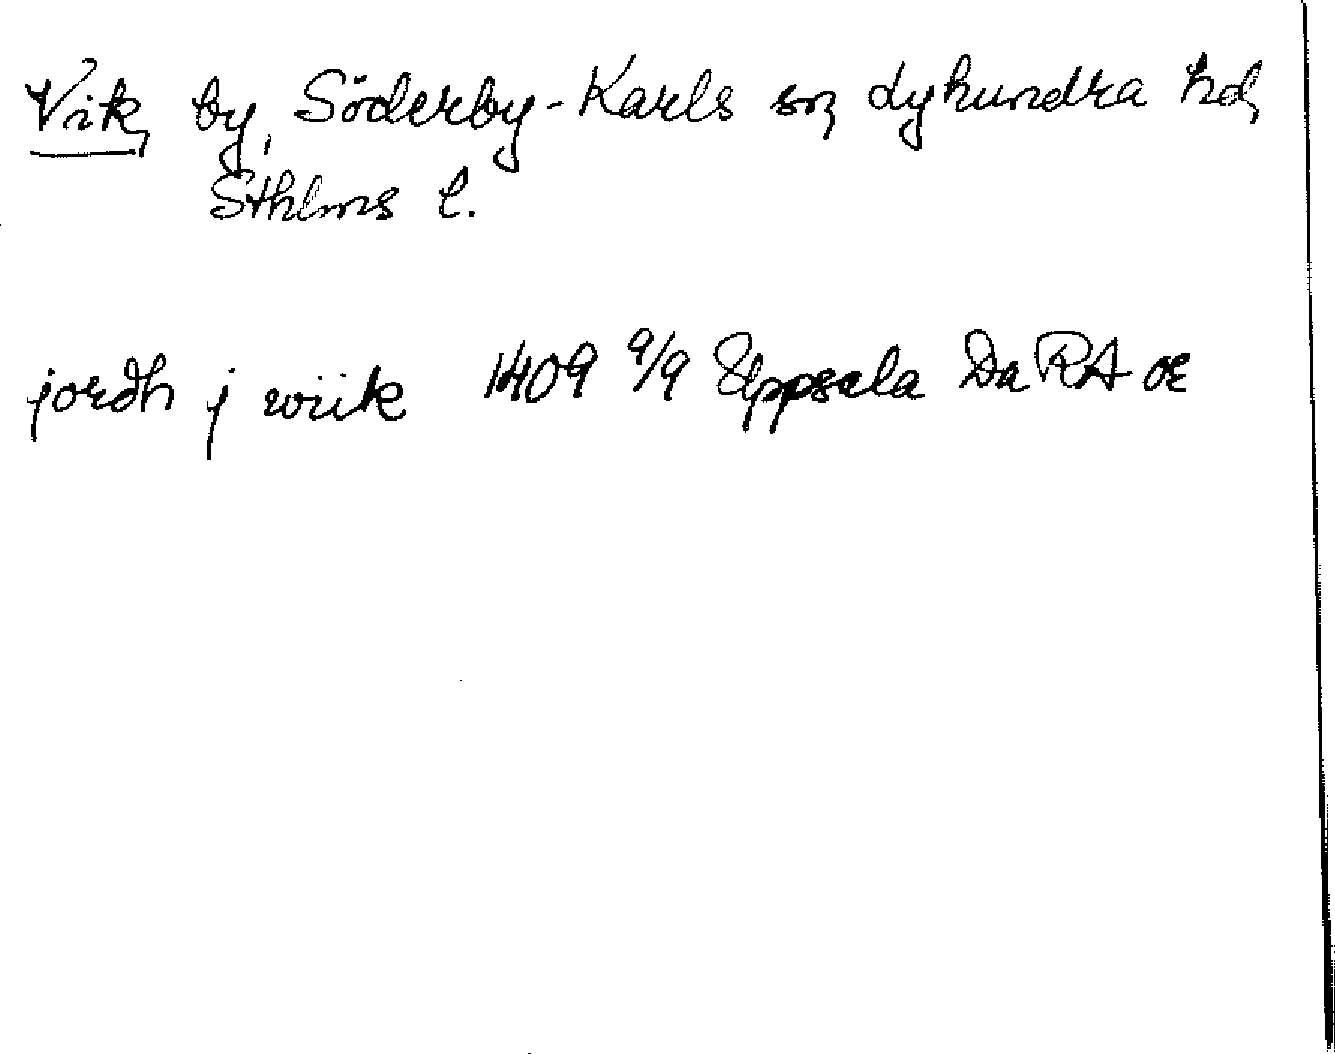 Vik, by, Söderby-Karls sn, Lyhundra hd,
Sthlms l.
jordh j wiik 1409 9/9 Uppsala Da RA or